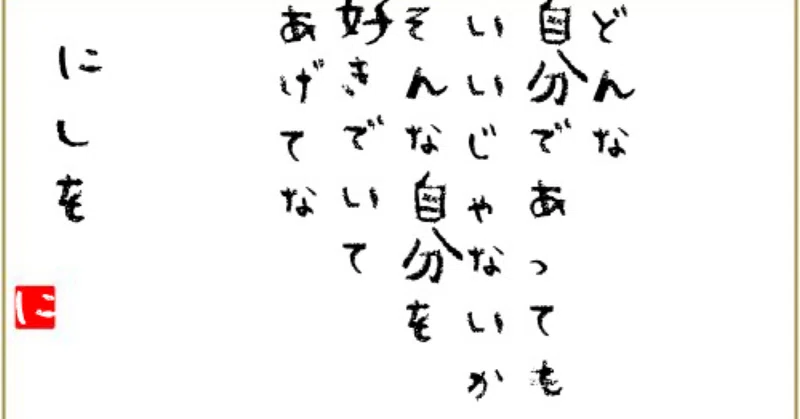 どんな
自分であっても
いいじゃないか
そんな自分を
好きでいて
あげてな
にしを
に